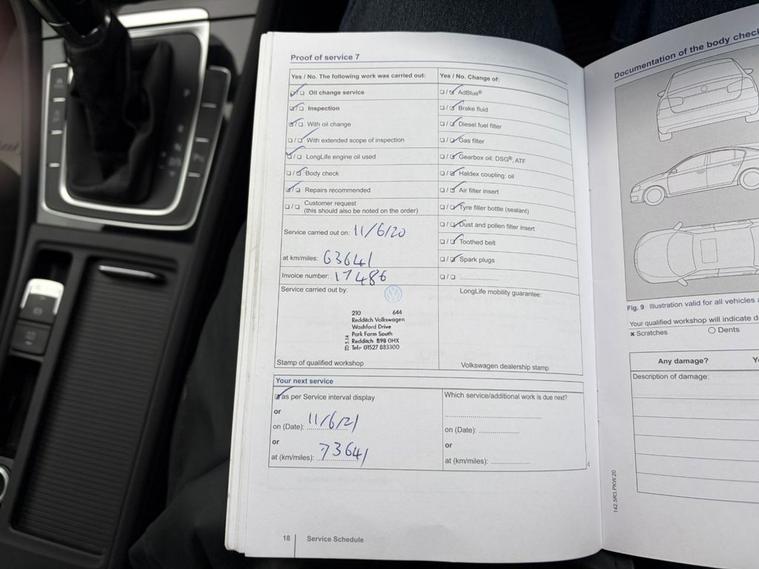 Proof of service 7
Yes / No. The following work was carried out:
Oil change service
Inspection
With oil change
With extended scope of inspection
LongLife engine oil used
Body check
Repairs recommended
Customer request
(this should also be noted on the order)
Service carried out on: 11/6/20
at km/miles: 63641
Invoice number: 17486
Service carried out by:
210 644
Redditch Volkswagen
Washford Drive
Park Farm South
Redditch B98 0HX
Tel: 01527 883300
Stamp of qualified workshop
Yes / No. Change of:
AdBlue®
Brake fluid
Diesel fuel filter
Gas filter
Gearbox oil: DSG®, ATF
Haldex coupling: oil
Air filter insert
Tyre filler bottle (sealant)
Dust and pollen filter insert
Toothed belt
Spark plugs
LongLife mobility guarantee:
Volkswagen dealership stamp
Your next service
as per Service interval display
or
on (Date): 11/6/21
or
at (km/miles): 73641
Which service/additional work is due next?
on (Date):
or
at (km/miles):
18 Service Schedule
Documentation of the body chec
Fig. 9 Illustration valid for all vehicles
Your qualified workshop will indicate d
x Scratches O Dents
Any damage? Y
Description of damage: